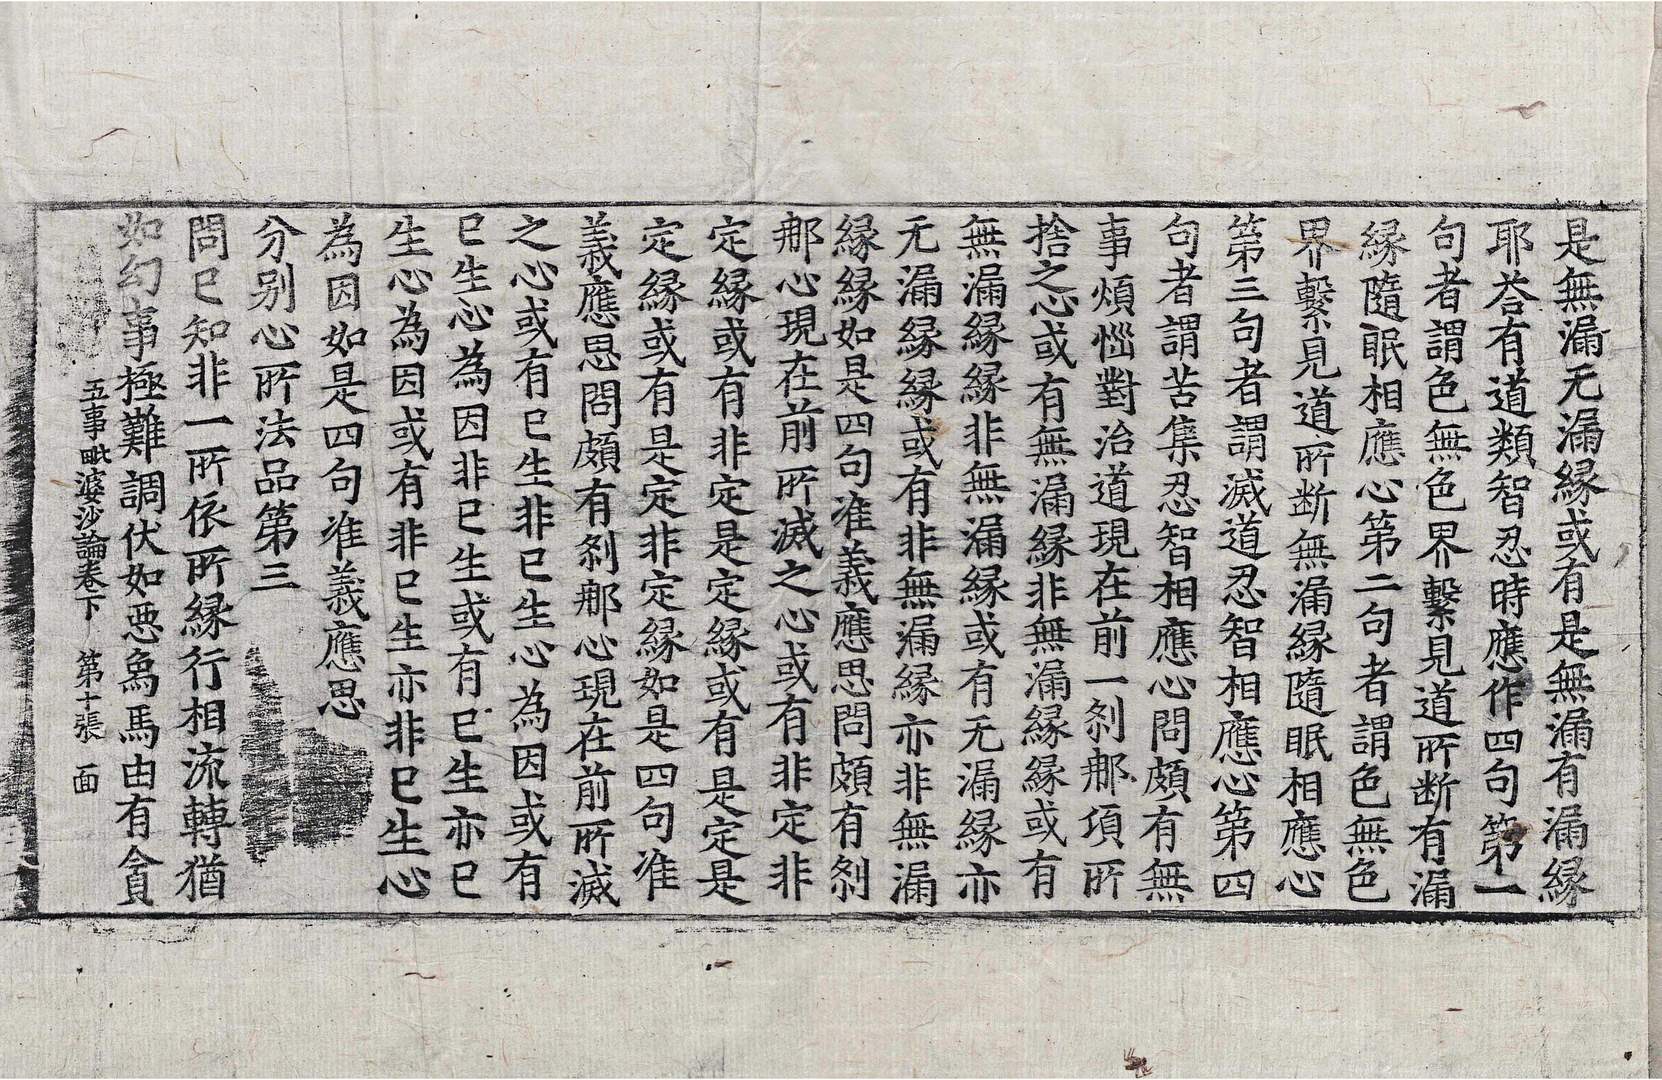 是無漏无漏縁或有是無漏有漏縁
耶荅有道類智忍時應作四句第一
句者謂色無色界繫見道所断有漏
縁隨眠相應心第二句者謂色無色
界繫見道所断無漏縁隨眠相應心
第三句者謂滅道忍智相應心第四
句者謂苦集忍智相應心問頗有無
事煩惱對治道現在前一刹那頃所
捨之心或有無漏縁非無漏縁縁或有
無漏縁縁非無漏縁或有无漏縁亦
无漏縁縁或有非無漏縁亦非無漏
縁縁如是四句准義應思問頗有刹
那心現在前所滅之心或有非定非
定縁或有非定是定縁或有是定是
定縁或有是定非定縁如是四句准
義應思問頗有刹那心現在前所滅
之心或有已生非已生心為因或有
已生心為因非已生或有已生亦已
生心為因或有非已生亦非已生心
為因如是四句准義應思
分别心所法品第三
問已知非一所依所縁行相流轉猶
如幻事極難調伏如惡象馬由有貪
五事毗婆沙論卷下 第十張 面